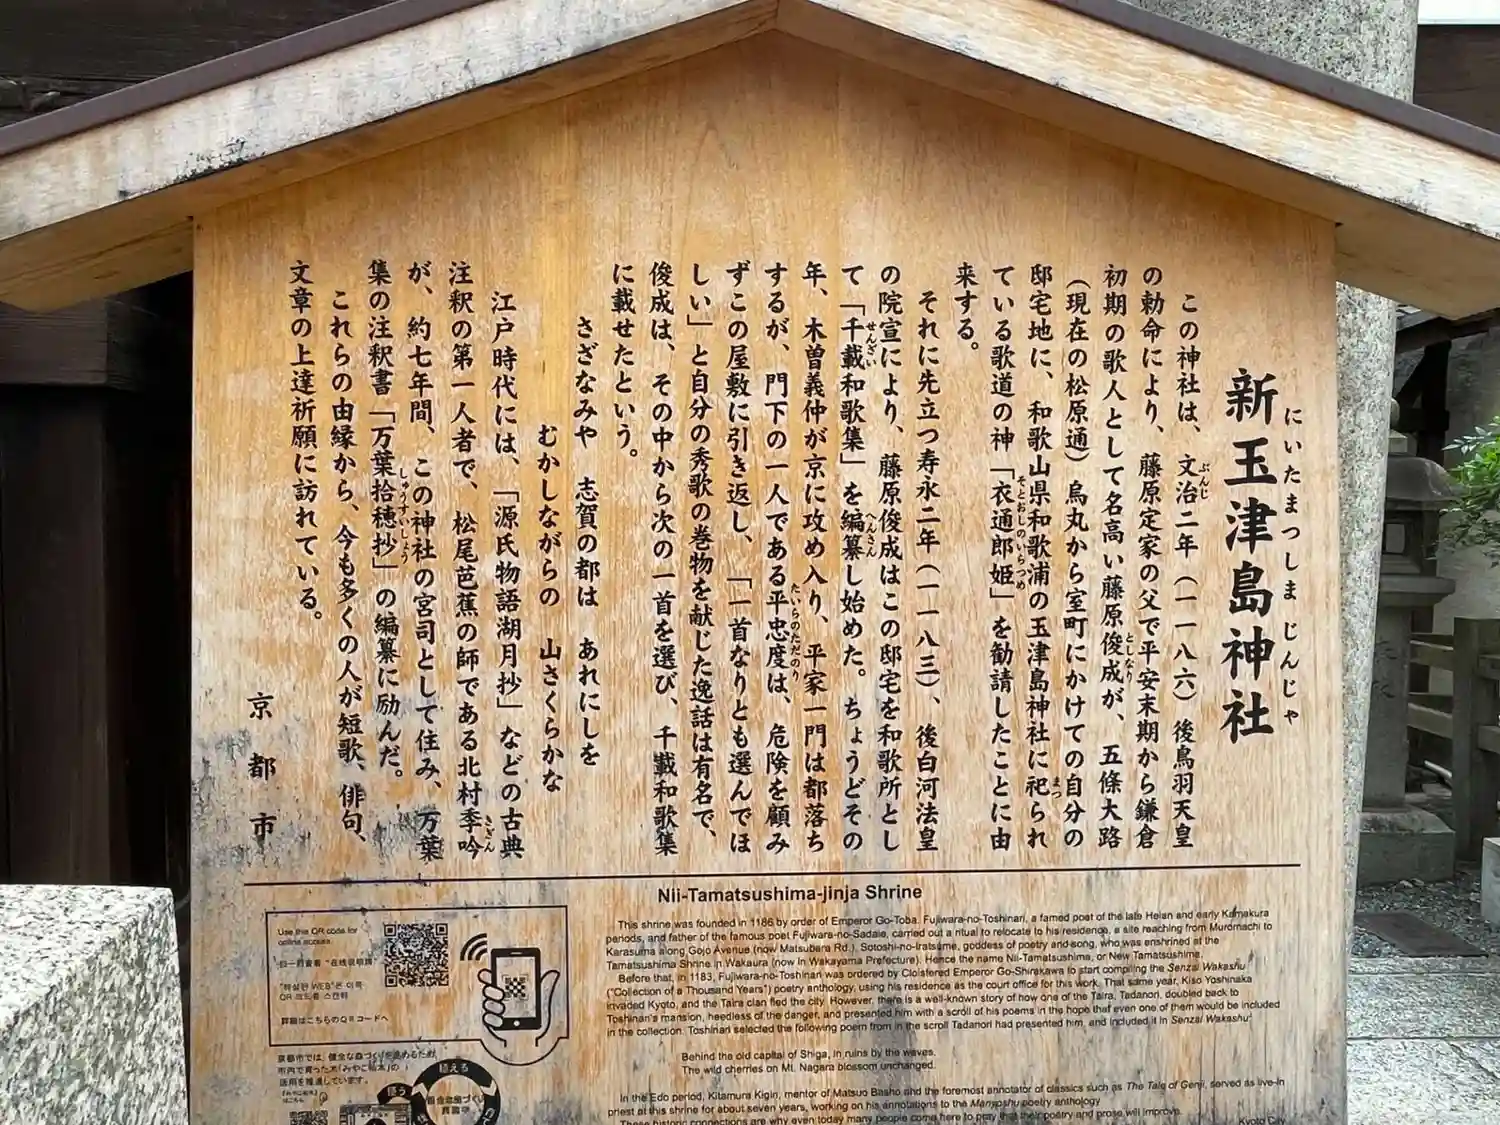 新玉津島神社
にいたまつしまじんじゃ
この神社は、文治二年（一一八六）後鳥羽天皇
ぶんじ
の勅命により、藤原定家の父で平安末期から鎌倉
初期の歌人として名高い藤原俊成が、五條大路
としなり
（現在の松原通）烏丸から室町にかけての自分の
邸宅地に、和歌山県和歌浦の玉津島神社に祀られ
まつ
ている歌道の神「衣通郎姫」を勧請したことに由
そとおしのいらつめ
来する。
それに先立つ寿永二年（一一八三）、後白河法皇
の院宣により、藤原俊成はこの邸宅を和歌所とし
て「千載和歌集」を編纂し始めた。ちょうどその
せんざい
へんさん
年、木曽義仲が京に攻め入り、平家一門は都落ち
するが、門下の一人である平忠度は、危険を顧み
たいらのただのり
ずこの屋敷に引き返し、「一首なりとも選んでほ
しい」と自分の秀歌の巻物を献じた逸話は有名で、
俊成は、その中から次の一首を選び、千載和歌集
に載せたという。
さざなみや 志賀の都は あれにしを
むかしながらの 山さくらかな
江戸時代には、「源氏物語湖月抄」などの古典
注釈の第一人者で、松尾芭蕉の師である北村季吟
きぎん
が、約七年間、この神社の宮司として住み、万葉
集の注釈書「万葉拾穂抄」の編纂に励んだ。
しゅうすいしょう
これらの由縁から、今も多くの人が短歌、俳句、
文章の上達祈願に訪れている。
京都市
Nii-Tamatsushima-jinja Shrine
This shrine was founded in 1186 by order of Emperor Go-Toba. Fujiwara-no-Toshinari, a famed poet of the late Heian and early Kamakura
periods, and father of the famous poet Fujiwara-no-Sadaie, carried out a ritual to relocate to his residence, a site reaching from Muromachi to
Karasuma along Gojo Avenue (now Matsubara Rd.), Sotoshi-no-Iratsume, goddess of poetry and song, who was enshrined at the
Tamatsushima Shrine in Wakaura (now in Wakayama Prefecture). Hence the name Nii-Tamatsushima, or New Tamatsushima.
Before that, in 1183, Fujiwara-no-Toshinari was ordered by Cloistered Emperor Go-Shirakawa to start compiling the Senzai Wakashu
("Collection of a Thousand Years") poetry anthology, using his residence as the court office for this work. That same year, Kiso Yoshinaka
invaded Kyoto, and the Taira clan fled the city. However, there is a well-known story of how one of the Taira, Tadanori, doubled back to
Toshinari's mansion, heedless of the danger, and presented him with a scroll of his poems in the hope that even one of them would be included
in the collection. Toshinari selected the following poem from in the scroll Tadanori had presented him, and included it in Senzai Wakashu:
Behind the old capital of Shiga, in ruins by the waves,
The wild cherries on Mt. Nagara blossom unchanged.
In the Edo period, Kitamura Kigin, mentor of Matsuo Basho and the foremost annotator of classics such as The Tale of Genji, served as live-in
priest at this shrine for about seven years, working on his annotations to the Manyoshu poetry anthology
These historic connections are why even today many people come here to pray that their poetry and prose will improve.
Kyoto City
Use this QR code for
online access.
扫一扫查看 "在线说明牌"
"해설판 WEB"은 이쪽
QR 코드를 스캔해
詳細はこちらのQRコードへ
京都市では、健全な森づくりを進めるため、
市内で育った木「みやこ杣木」の
活用を推進しています。
植える
使う